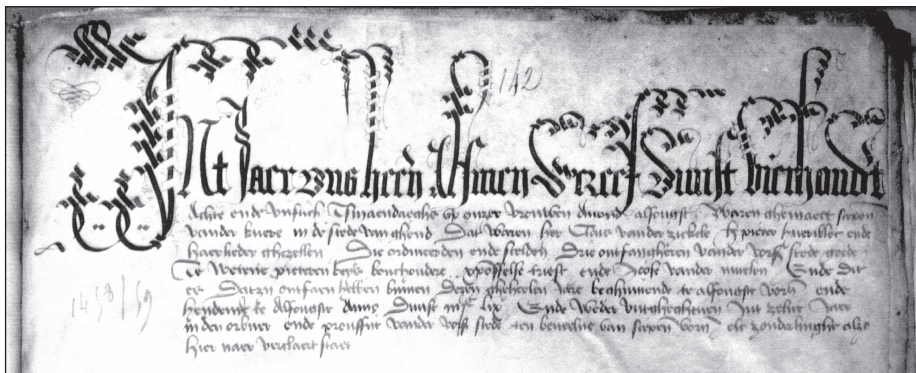 142
Int Jaer ons heeren alsmen screef Duust vierhondt
Achte ende vichtich Tsmaendaechs up onzer vrouwen avond alfougst waren ghemaect scepen
vander kuere in de stede van ghend Dat waren hier Claus vander zickele h pieter ende
haerlieder ghezellen Die ordineerden ende stelden Drie ontfanghers vander vors stede goede
Te wetene pieteren bouchoudere triest ende Joose vander muelen Ende dit
es Datzii ontfaen hebben binnen dezen gheheelen jare beghinnende te alfougste vors ende
hendende te alfougste anno Duust iiijc lix Ende weder uutghegheven Int zelve jaer
in den orbuer ende prouffite vander vors stede ten bevelne van scepen vors elc zonderlinghe alzo
hier naer verclaert staet
1458/59